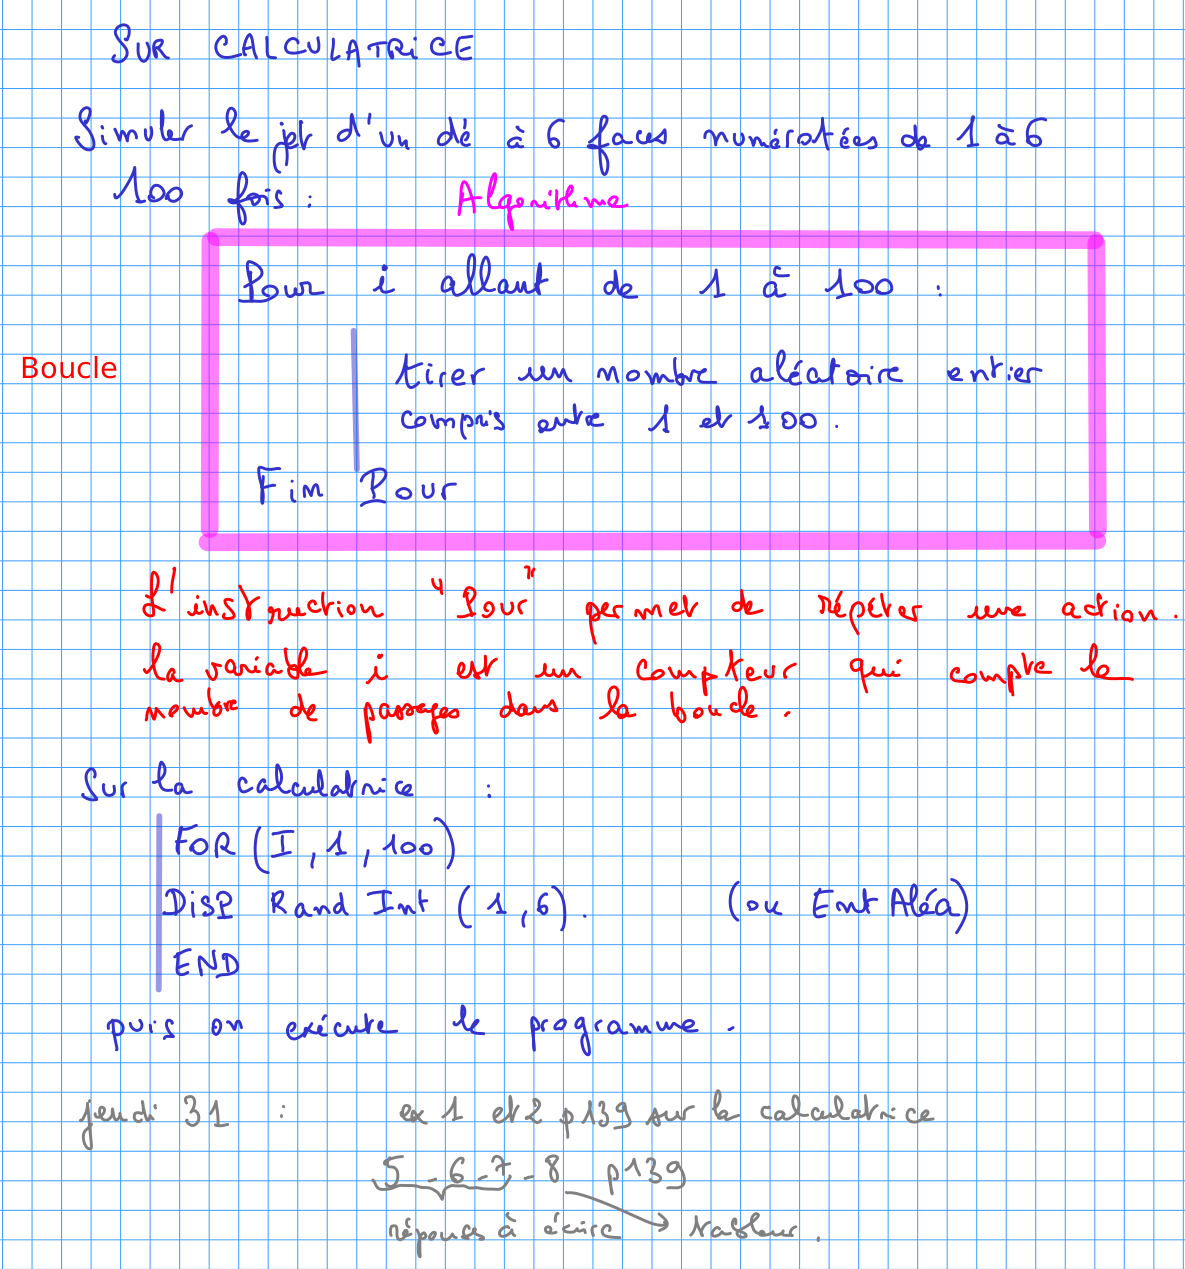 SUR CALCULATRICE
Simuler le jet d'un dé à 6 faces numérotées de 1 à 6
100 fois :
Algorithme
Pour i allant de 1 à 100 :
Boucle
tirer un nombre aléatoire entier
compris entre 1 et 100.
Fin Pour
L'instruction "Pour" permet de répéter une action.
la variable i est un compteur qui compte le
nombre de passages dans la boucle.
Sur la calculatrice :
FOR (I, 1, 100)
DISP Rand Int (1,6). (ou Ent Aléa)
END
puis on exécute le programme.
jeudi 31 : ex 1 et 2 p139 sur la calculatrice
5 - 6 - 7 - 8 p139
réponses à écrire → tableur.